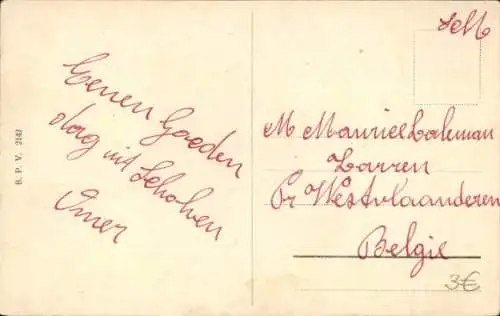 Eenen Goeden
dag uit Schoten
Omer
B. P. V. 2142
M Maurice Lakman
Zarren
Pr Westvlaanderen
Belgie
3€